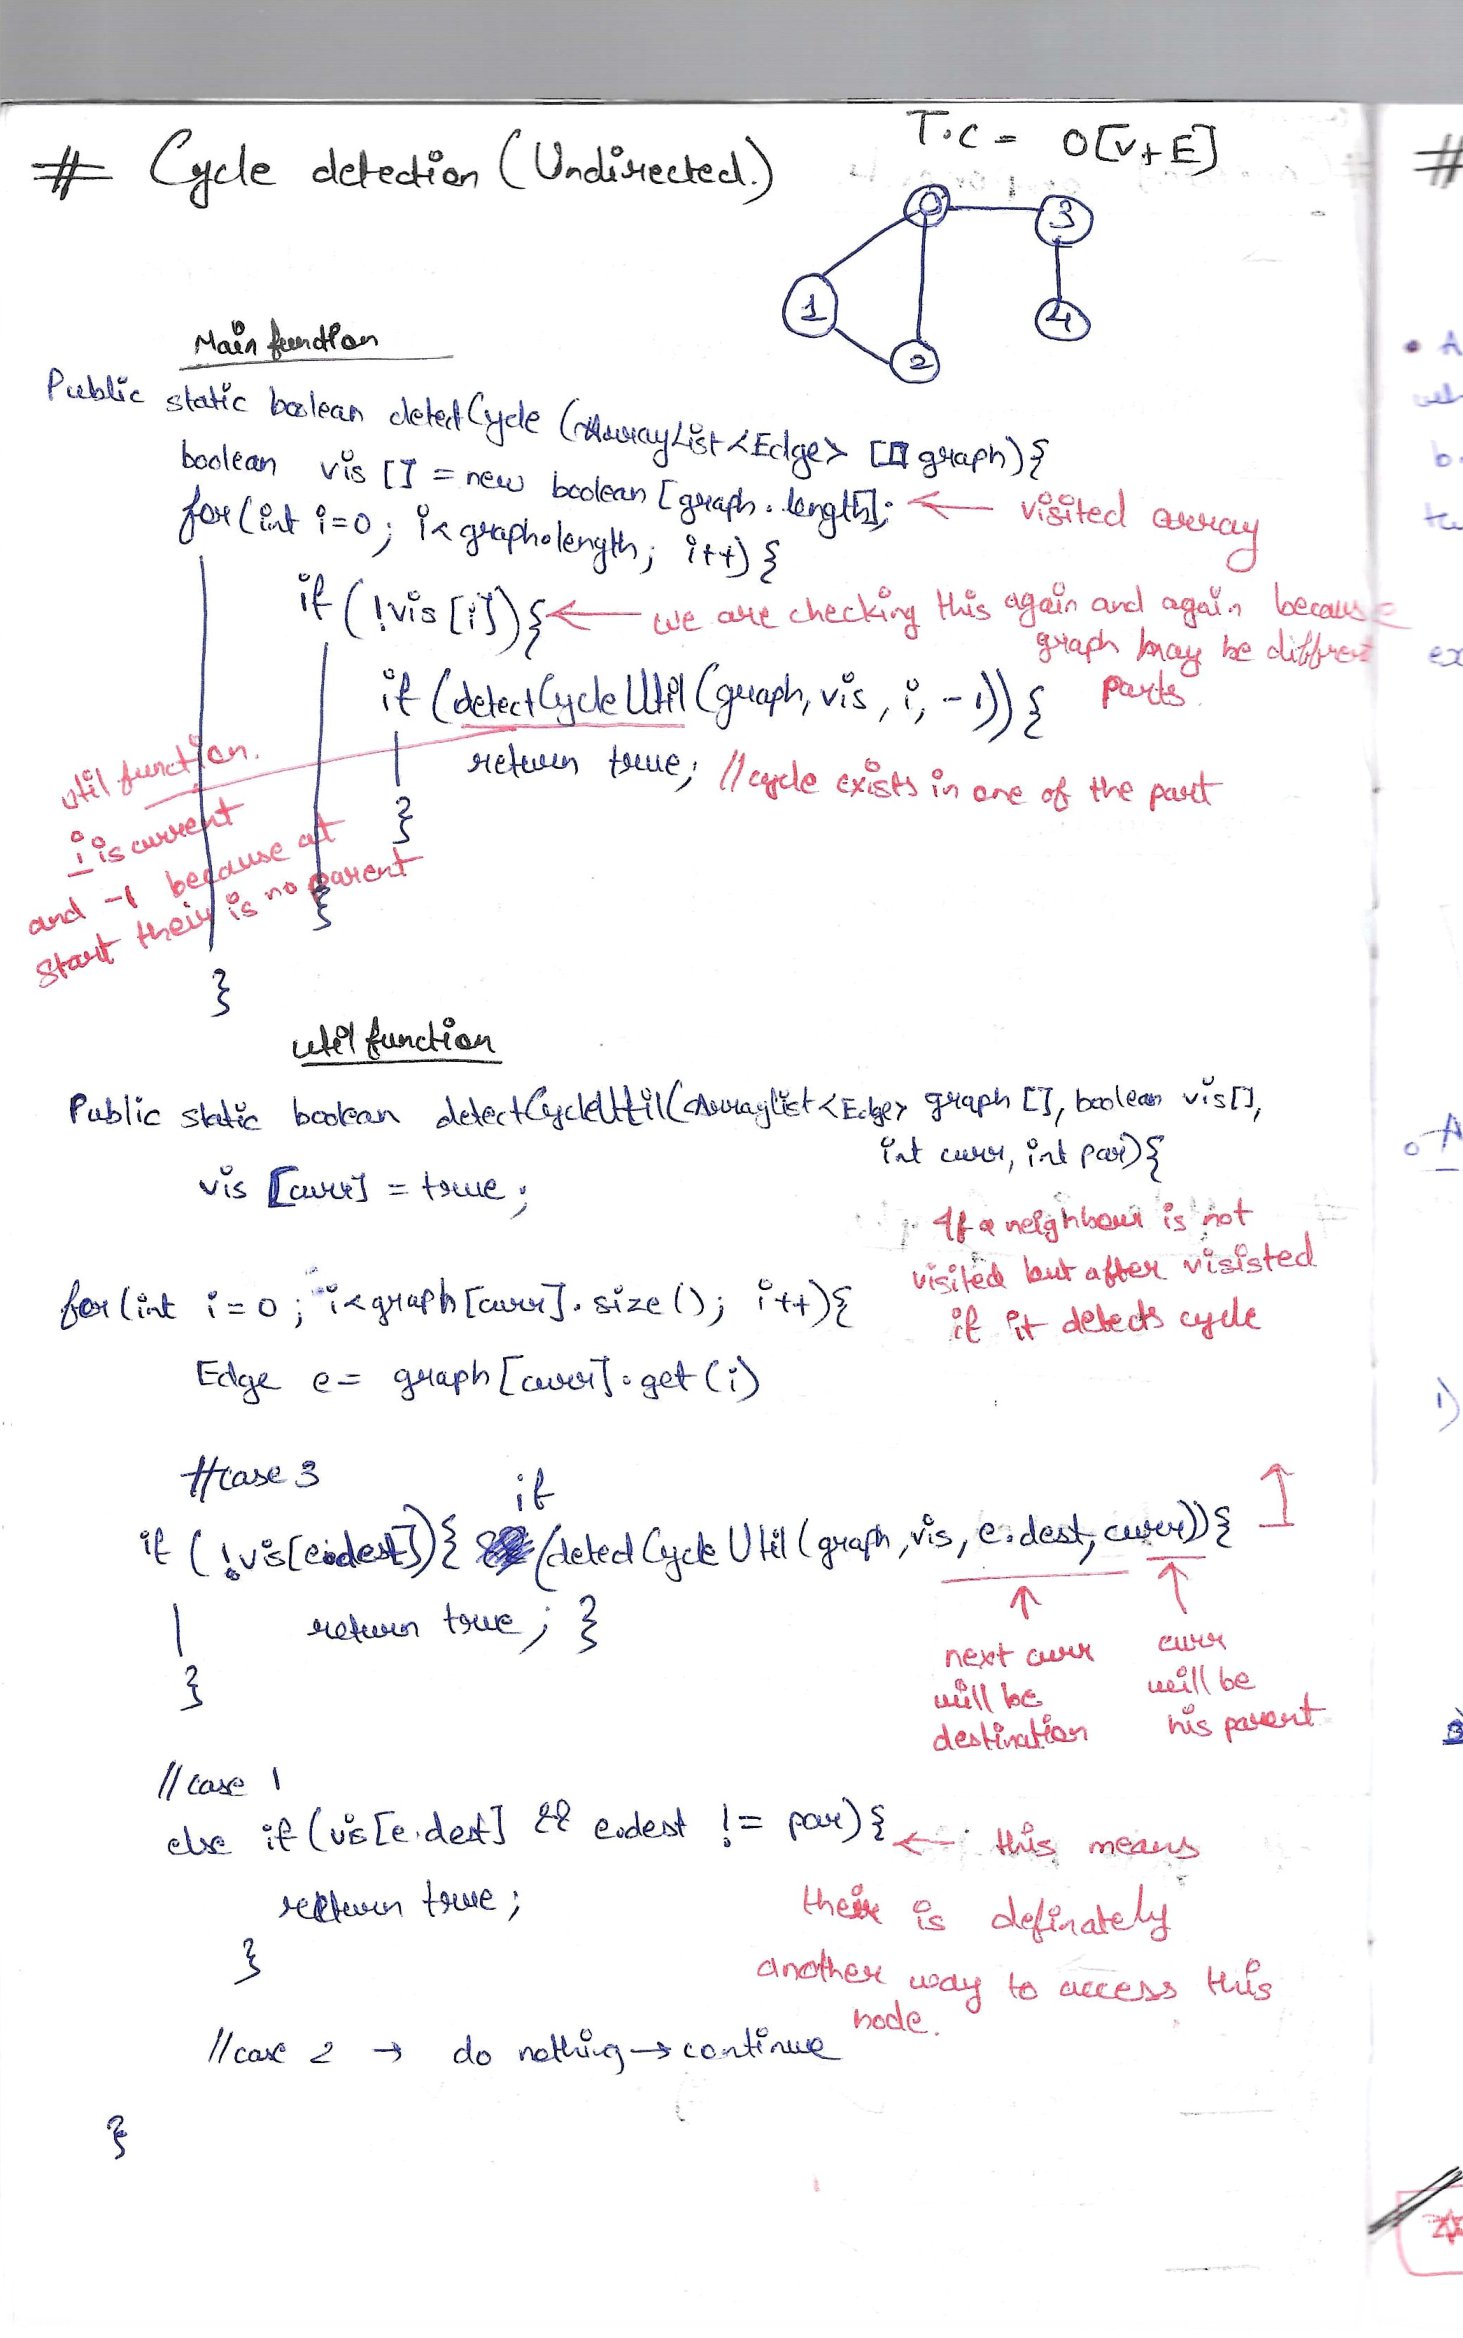 # Cycle detection (Undirected.)
T.C = O[V+E]
0
3
1
4
2
Main function
Public static boolean detectCycle (ArrayList<Edge> [] graph){
boolean vis [] = new boolean [graph.length];
← visited array
for(int i=0; i<graph.length; i++) {
if (!vis [i]){
← we are checking this again and again because
graph may be diffrent
parts
if (detectCycleUtil (graph, vis, i, -1)) {
return true; //cycle exists in one of the part
}
util function.
i is current
and -1 because at
start their is no parent
}
}
util function
Public static boolean detectCycleUtil(ArrayList<Edge> graph [], boolean vis[],
int curr, int par){
vis [curr] = true;
If a neighbour is not
visited but after visisted
if it detects cycle
for(int i=0; i<graph[curr].size(); i++){
Edge e= graph[curr].get(i)
#case 3
if
if (!vis[e.dest]){ (detectCycleUtil(graph, vis, e.dest, curr)){
return true; }
}
↑ next curr
will be
destination
↑ curr
will be
his parent
//case 1
else if (vis[e.dest] && e.dest != par){
← this means
their is definately
another way to access this
node.
return true;
}
//case 2 → do nothing → continue
}